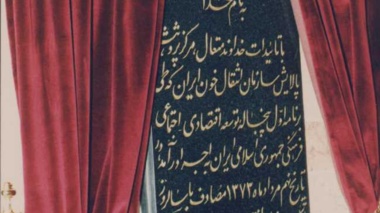 بنام خدا
با تائیدات خداوند متعال، مرکز پژوهش
پالایش سازمان انتقال خون ایران که طی
برنامه اول پنجساله توسعه اقتصادی، اجتماعی
فرهنگی جمهوری اسلامی ایران به اجرا درآمد در
تاریخ نهم مرداد ماه ۱۳۷۳ مصادف با سالروز